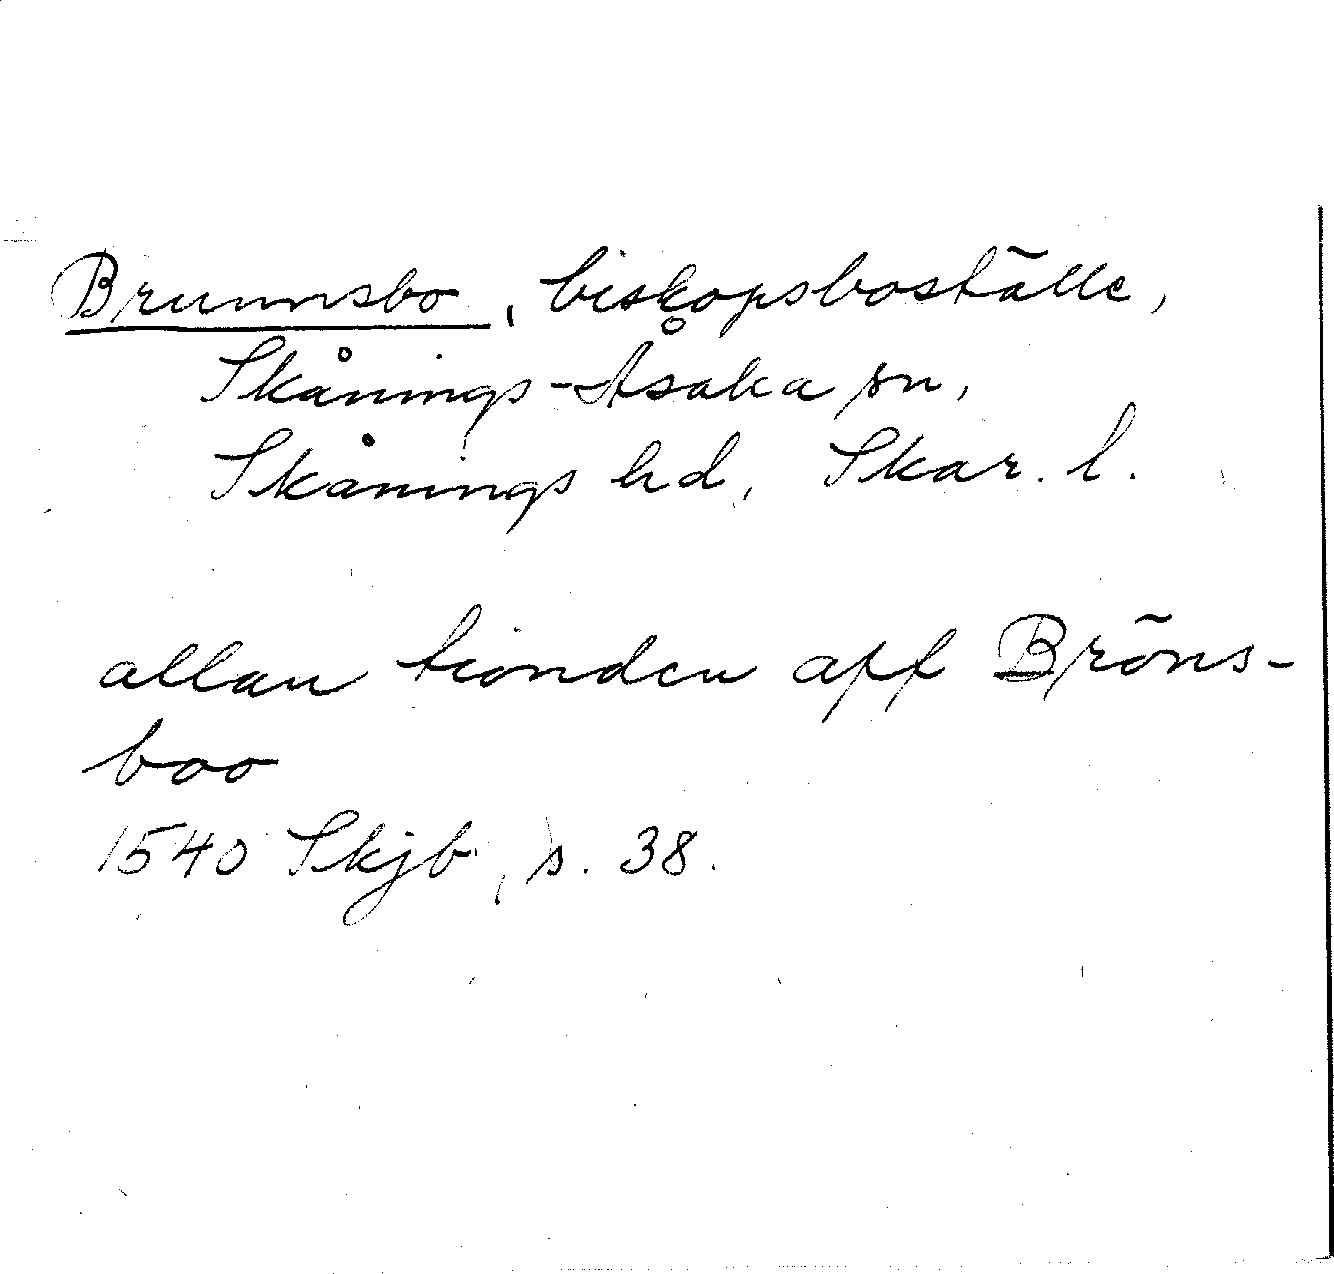 Brunnsbo, biskopsboställe,
Skånings-Åsaka sn,
Skånings hd, Skar. l.
allan tionden aff Bröns-
boo
1540 Skjb, s. 38.